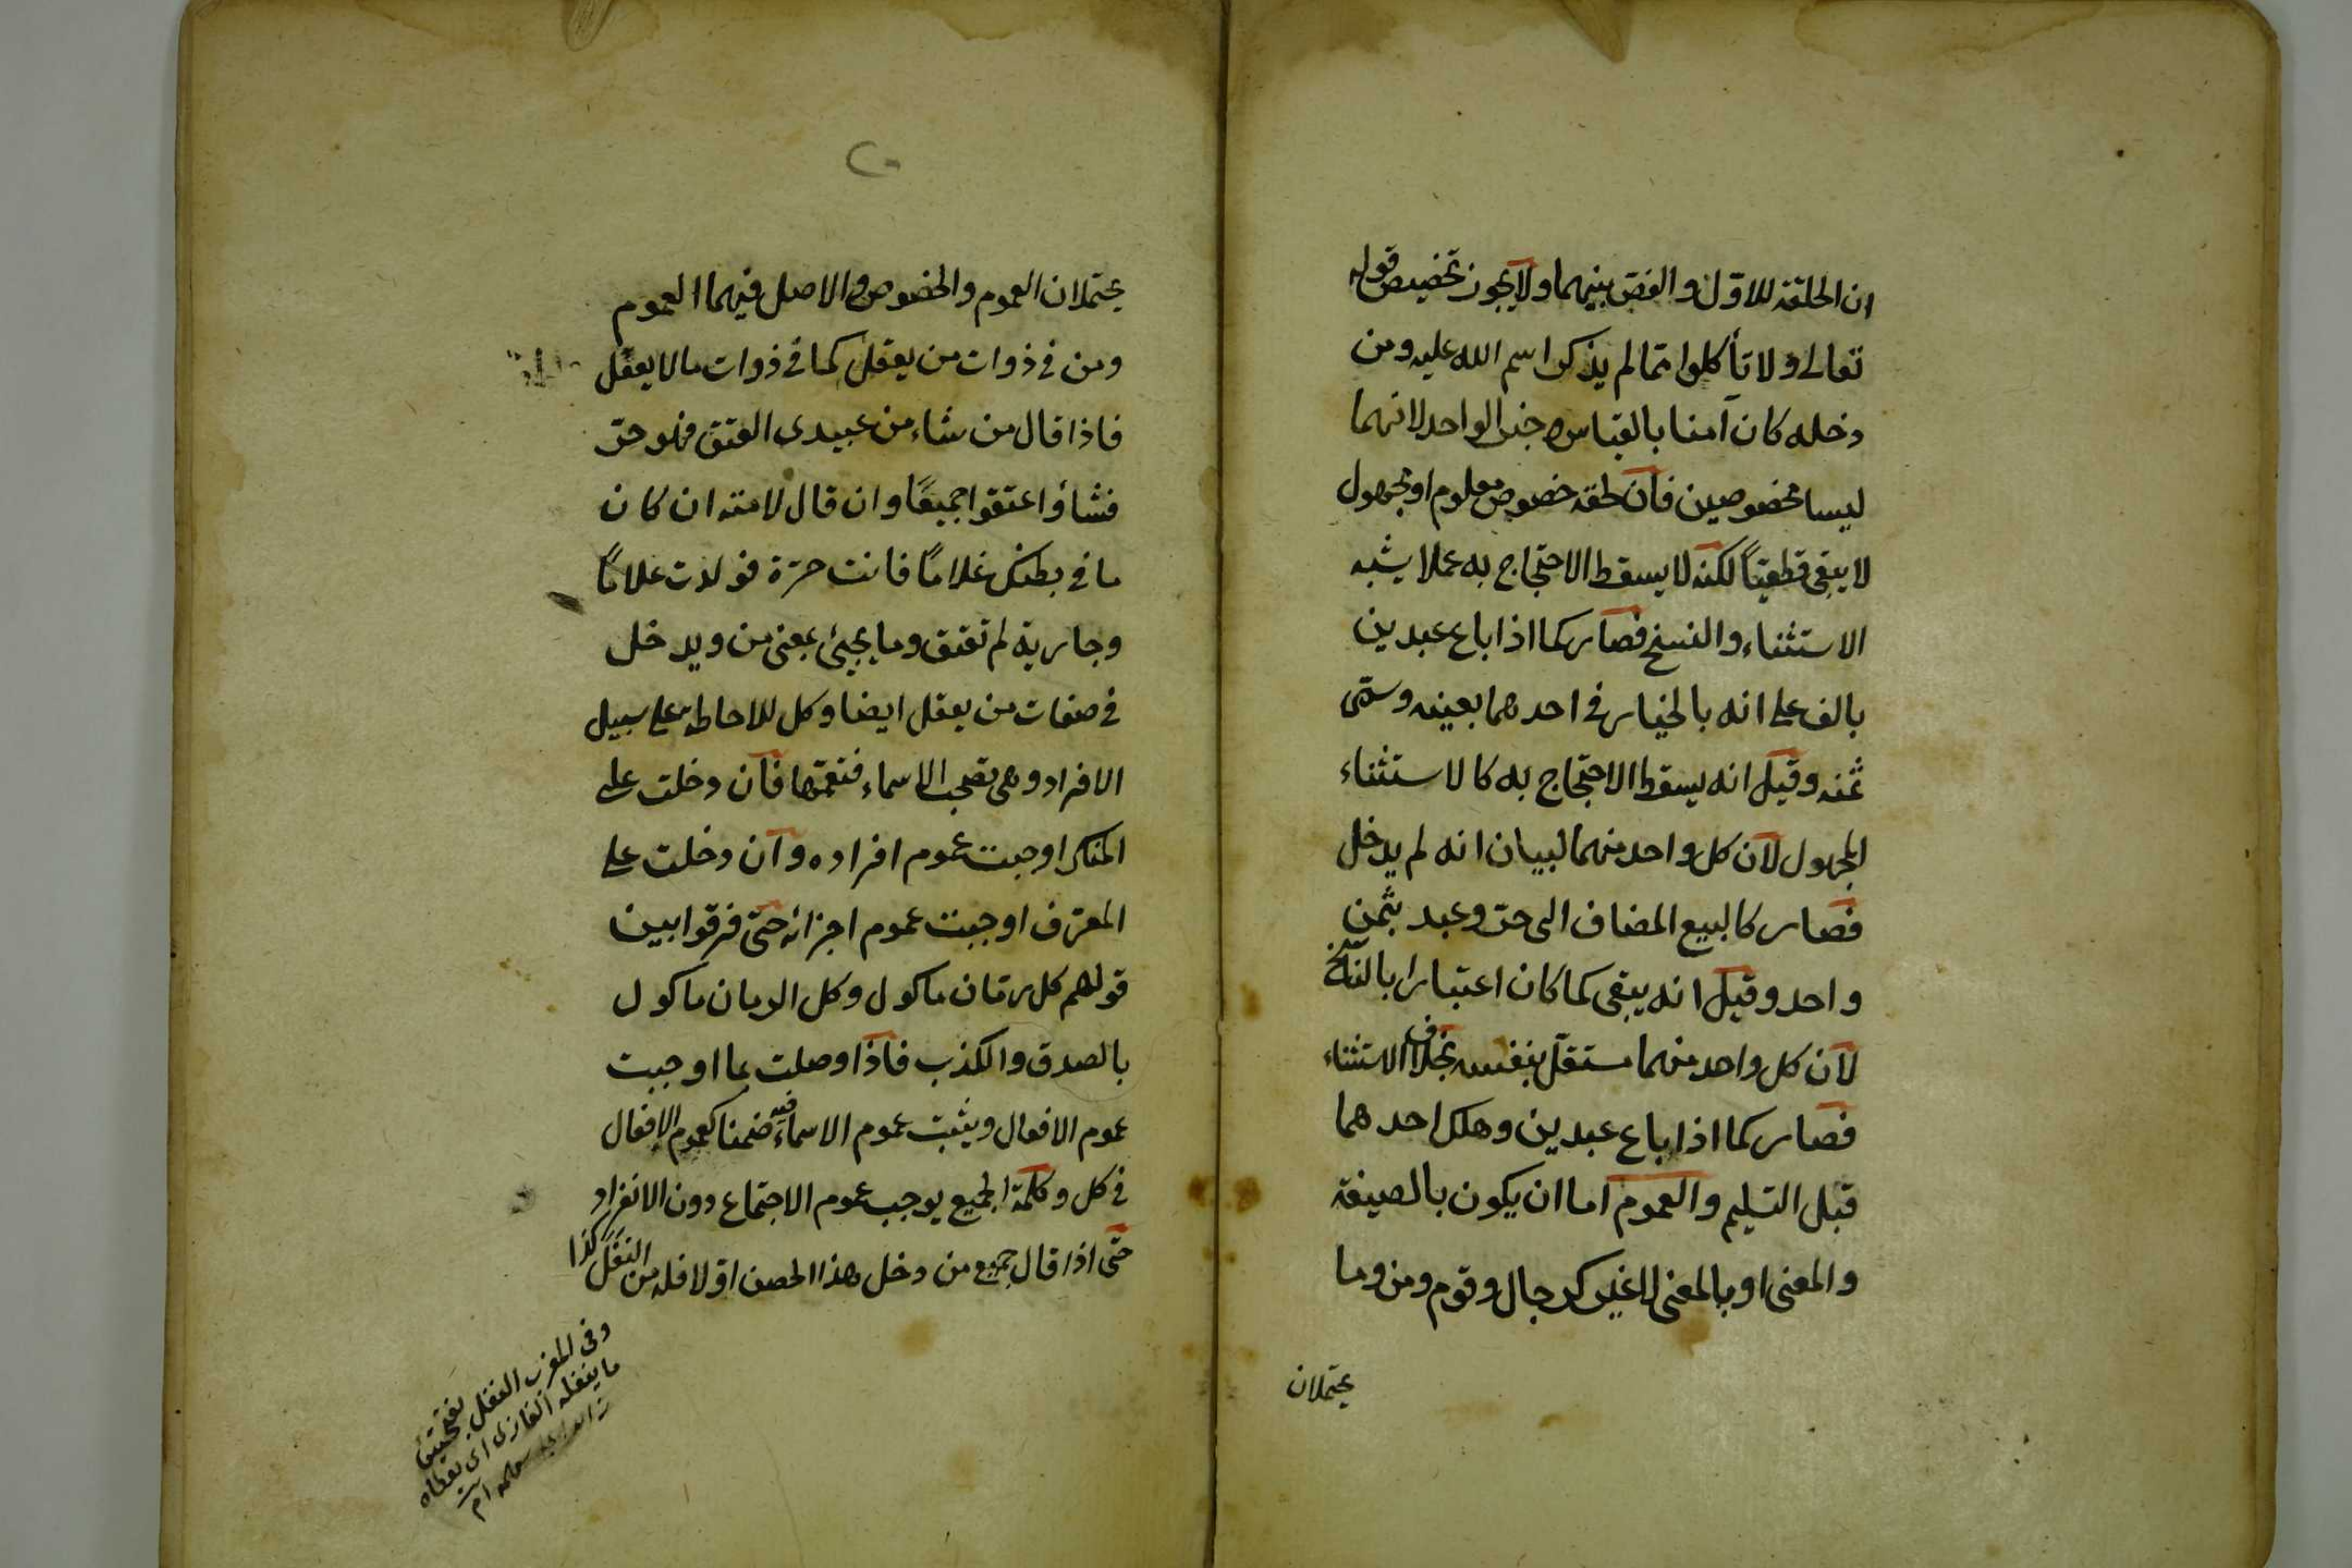 ان الحلقة للاول والفص بينهما ولا يجوز تخصيص قوله
تعالى ولا تأكلوا مما لم يذكر اسم الله عليه ومن
دخله كان آمنا بالقياس وخبر الواحد لانهما
ليسا مخصوصين فان لحقه خصوص معلوم او مجهول
لا يبقى قطعيًا لكنه لا يسقط الاحتجاج به عملا بشبه
الاستثناء والنسخ فصار كما اذا باع عبدين
بالف على انه بالخيار في احدهما بعينه وسمّى
ثمنه وقيل انه يسقط الاحتجاج به كالاستثناء
المجهول لان كل واحد منهما لبيان انه لم يدخل
فصار كالبيع المضاف الى حر وعبد بثمن
واحد وقيل انه يبقى كما كان اعتبارا بالناسخ
لان كل واحد منهما مستقل بنفسه بخلاف الاستثناء
فصار كما اذا باع عبدين وهلك احدهما
قبل التسليم والعموم اما ان يكون بالصيغة
والمعنى او بالمعنى لا غير كرجال وقوم ومن وما
يحتملان
٢٠
يحتملان العموم والخصوص والاصل فيهما العموم
ومن في ذوات من يعقل كما في ذوات ما لا يعقل
فاذا قال من شاء من عبيدى العتق فهو حر
فشاؤا عتقوا جميعًا وان قال لامته ان كان
ما في بطنك غلامًا فانت حرة فولدت غلامًا
وجارية لم تعتق وما يجيئ بمعنى من ويدخل
في صفات من يعقل ايضا وكل للاحاطة على سبيل
الافراد وهى تصحب الاسماء فتعمها فان دخلت على
المنكر اوجبت عموم افراده وان دخلت على
المعرف اوجبت عموم اجزائه حتى فرقوا بين
قولهم كل رمان ماكول وكل الرمان ماكول
بالصدق والكذب فاذا وصلت بما اوجبت
عموم الافعال ويثبت عموم الاسماء فيه ضمنا كعموم الافعال
في كل وكلمة الجميع يوجب عموم الاجتماع دون الانفراد
حتى اذا قال جميع من دخل هذا الحصن اولا فله من النفل كذا
وفى المغرب النفل بفتحتين
ما ينفله الغازى اى يعطاه